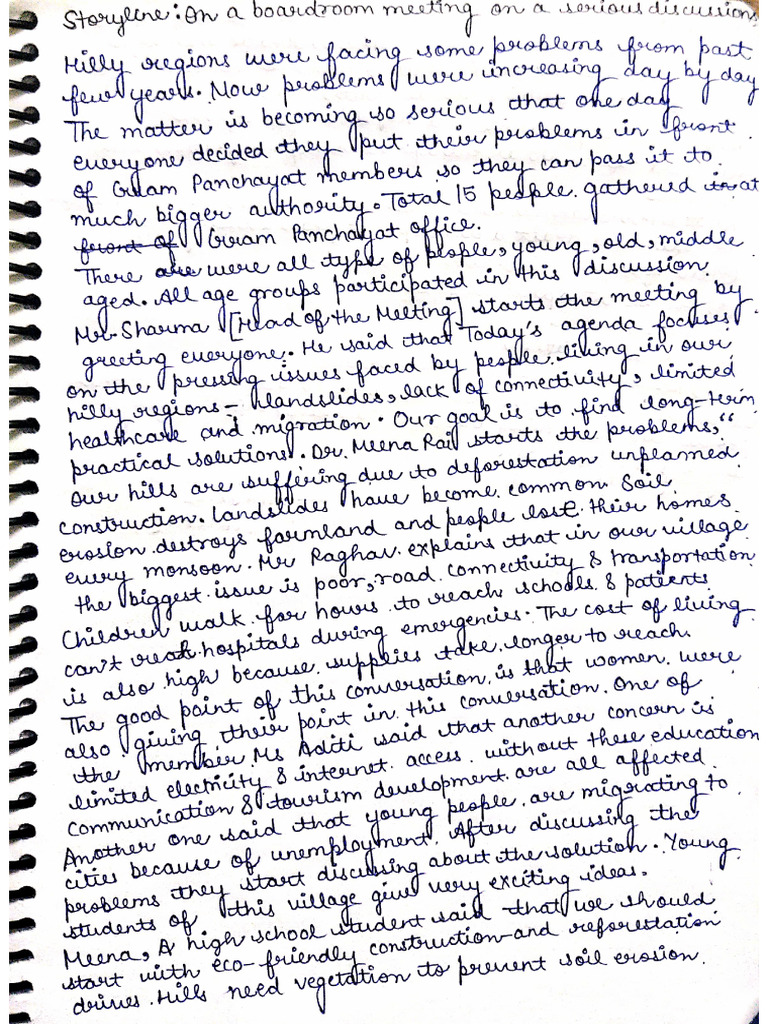 Storyline: On a boardroom meeting on a serious discussion.
Hilly regions were facing some problems from past
few years. Now problems were increasing day by day
The matter is becoming so serious that one day
everyone decided they put their problems in front
of Gram Panchayat members so they can pass it to
much bigger authority. Total 15 people gathered in at
front of Gram Panchayat office.
There are were all type of people, young, old, middle
aged. All age groups participated in this discussion.
Mr. Sharma [Head of the Meeting] starts the meeting by
greeting everyone. He said that Today's agenda focuses
on the pressing issues faced by people living in our
hilly regions - landslides, lack of connectivity, limited
healthcare and migration. Our goal is to find long-term
practical solutions. Dr. Meena Rai starts the problems, "
Our hills are suffering due to deforestation unplanned
construction. Landslides have become common. Soil
erosion destroys farmland and people lose their homes
every monsoon. Mr Raghav explains that in our village
the biggest issue is poor, road connectivity & transportation
Children walk for hours to reach schools & patients
can't reach hospitals during emergencies. The cost of living
is also high because supplies take longer to reach.
The good point of this conversation is that women were
also giving their point in this conversation. One of
the member Ms Aditi said that another concern is
limited electricity & internet access without these education
communication & tourism development are all affected.
Another one said that young people are migrating to
cities because of unemployment. After discussing the
problems they start discussing about the solution. Young
students of this village give very exciting ideas.
Meena, A high school student said that we should
start with eco-friendly construction and reforestation
drives. Hills need vegetation to prevent soil erosion.